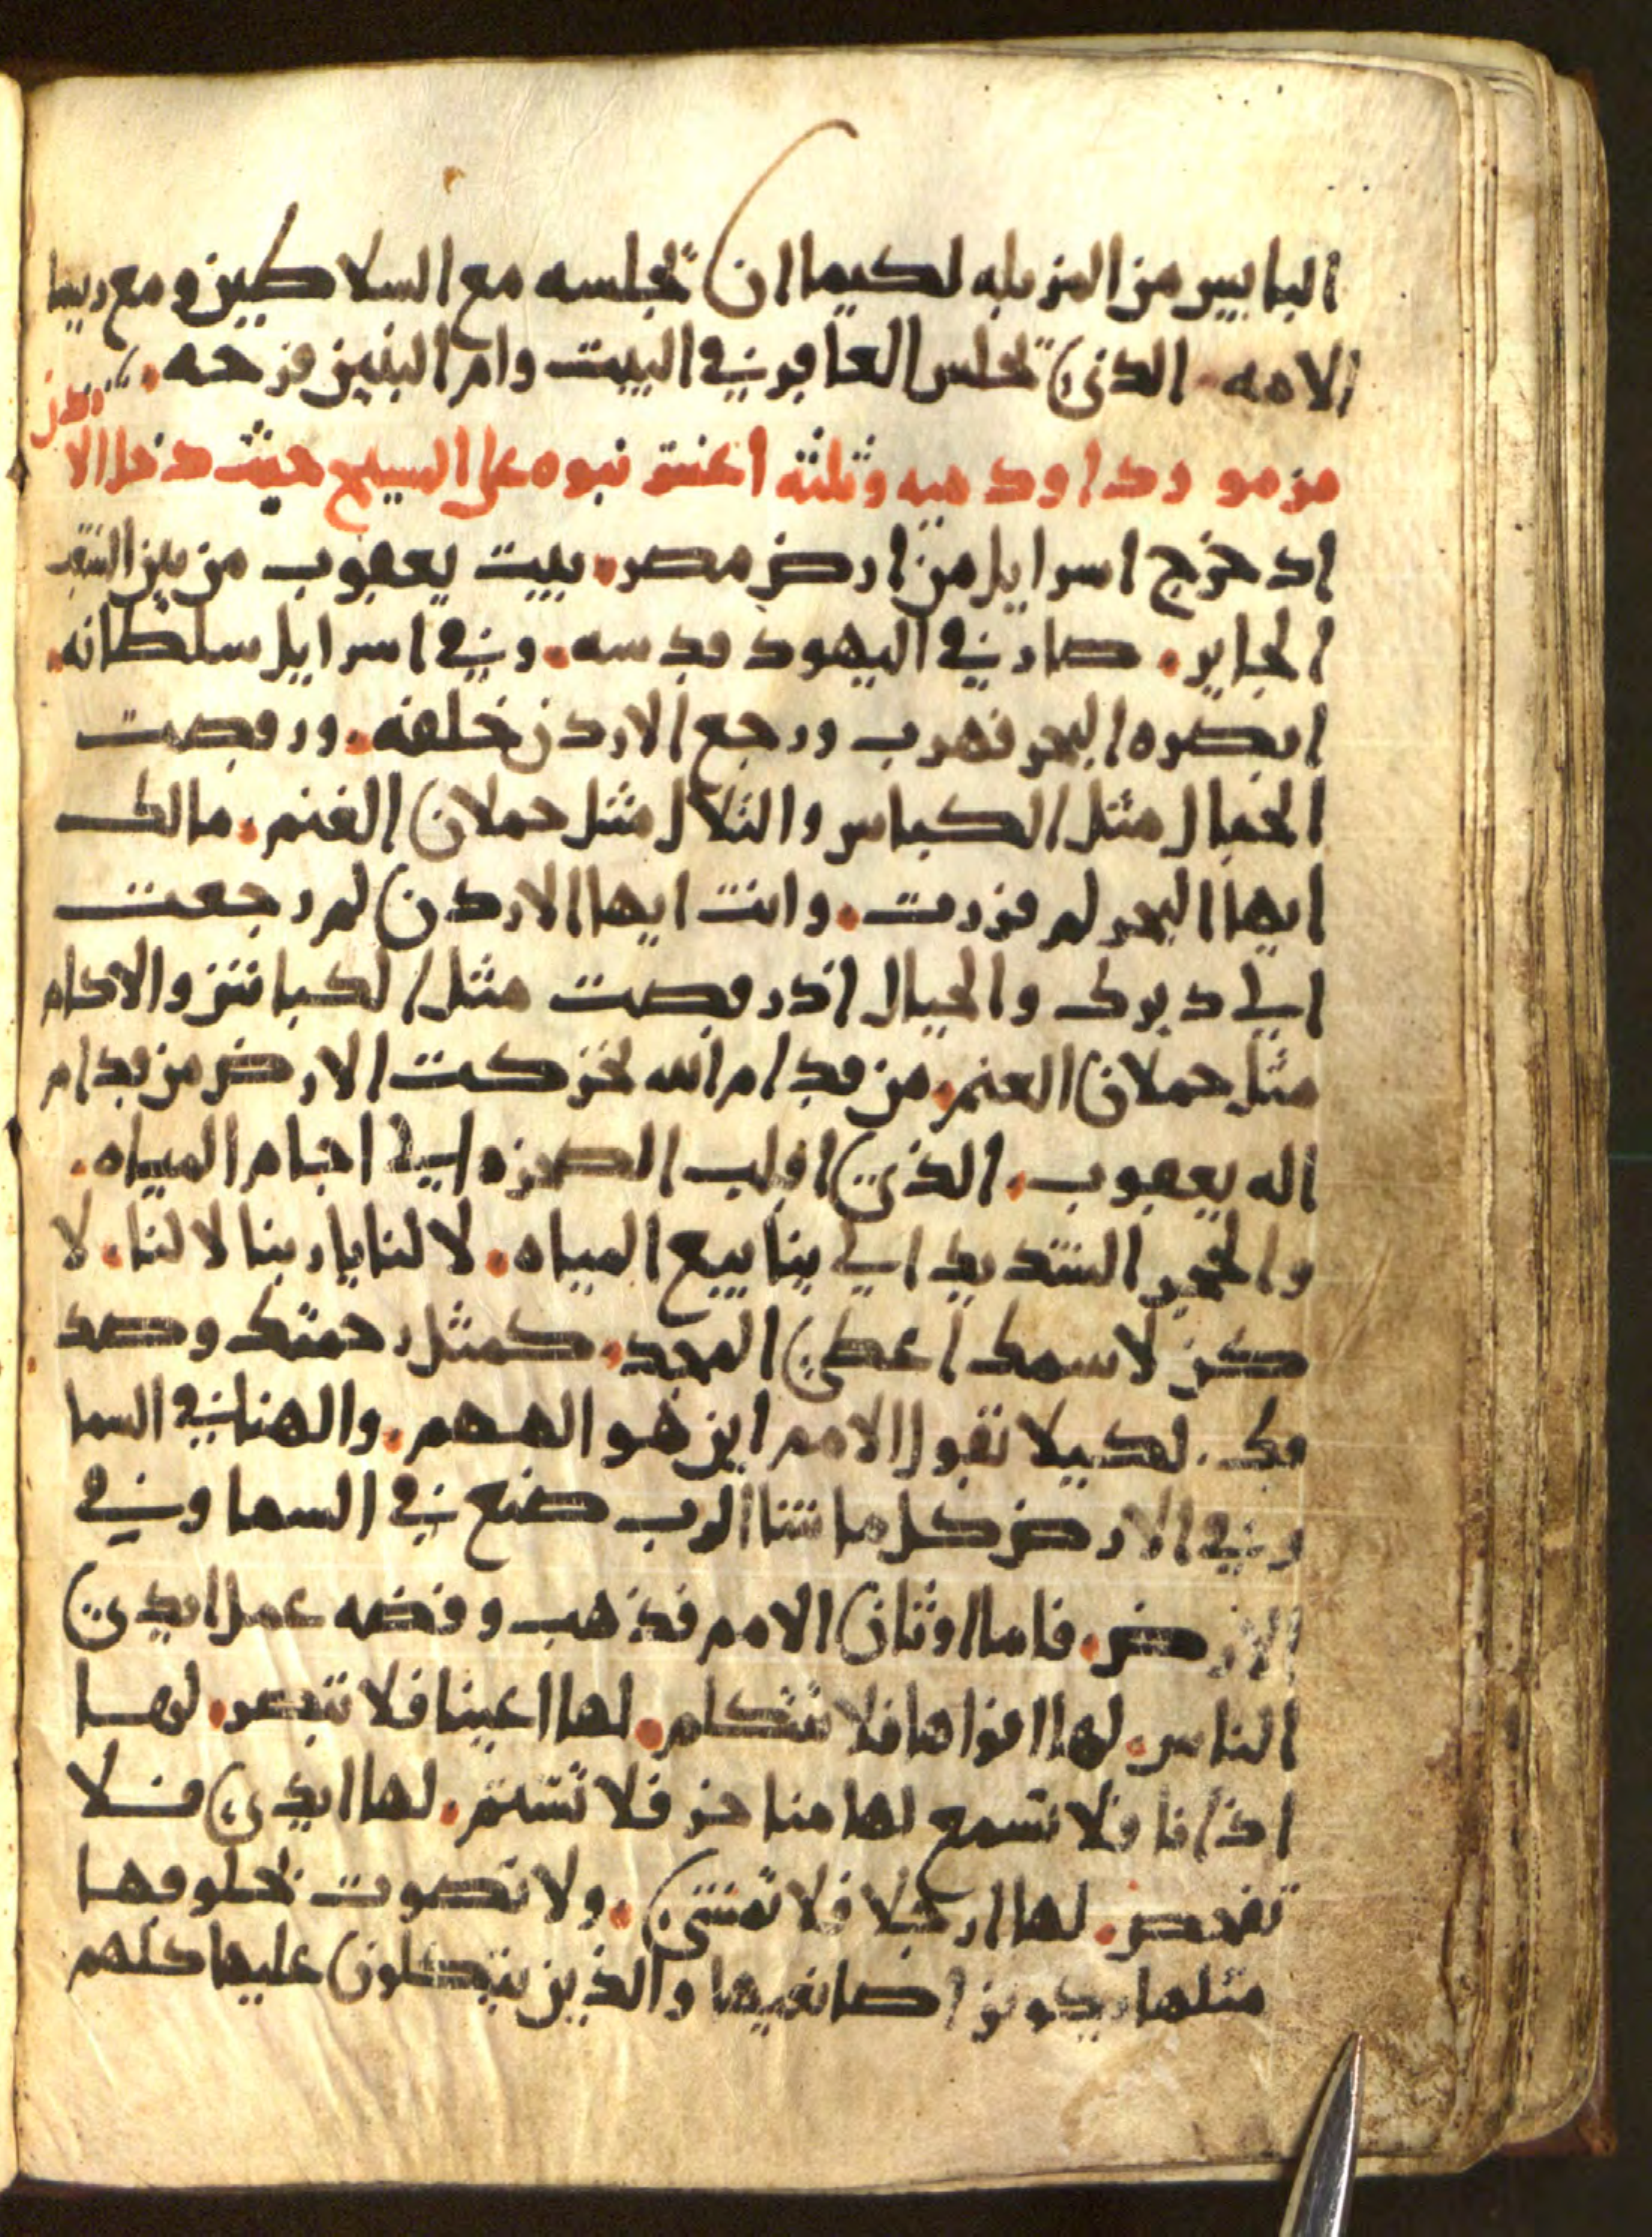 البايس من المزبله لكيما ان تجلسه مع السلاطين ومع ريسا
الامه الذي تجلس العاقر في البيت وام البنين فرحه
مزمور داود ميه وثلثة اعشر نبوه على المسيح حيث دخل الا
ردن
اد خرج اسرايل من ارض مصر بيت يعقوب من بين الشعب
الجاير صار في اليهود قدسه وفي اسرايل سلطانه
ابصره البحر فهرب ورجع الاردن خلفه ورقصت
الجبال مثل الكباس والتلال مثل حملان الغنم مالك
ايها البحر لم فررت وانت ايها الاردن لم رجعت
الي دبرك والجبال اذ رقصت مثل الكباش والاكام
مثل حملان الغنم من قدام الله تحركت الارض من قدام
اله يعقوب الذي اقلب الصخره الي اجام المياه
والحجر الشديد الي ينابيع المياه لا لنا يا ربنا لا لنا لا
كن لاسمك اعطي المجد كمثل رحمتك وصد
قك لكيلا تقول الامم اين هو الههم والهنا في السما
وفي الارض كل ما شا الرب صنع في السما وفي
الارض فاما اوثان الامم فذهب وفضه عمل ايدي
الناس لها افواها فلا تتكلم لها اعينا فلا تبصر لها
اذانا فلا تسمع لها مناخر فلا تشتم لها ايدي فلا
تفحص لها ارجلا فلا تمشي ولا تصوت بحلوقها
مثلها يكونو ا صانعيها والذين يتكلون عليها كلهم